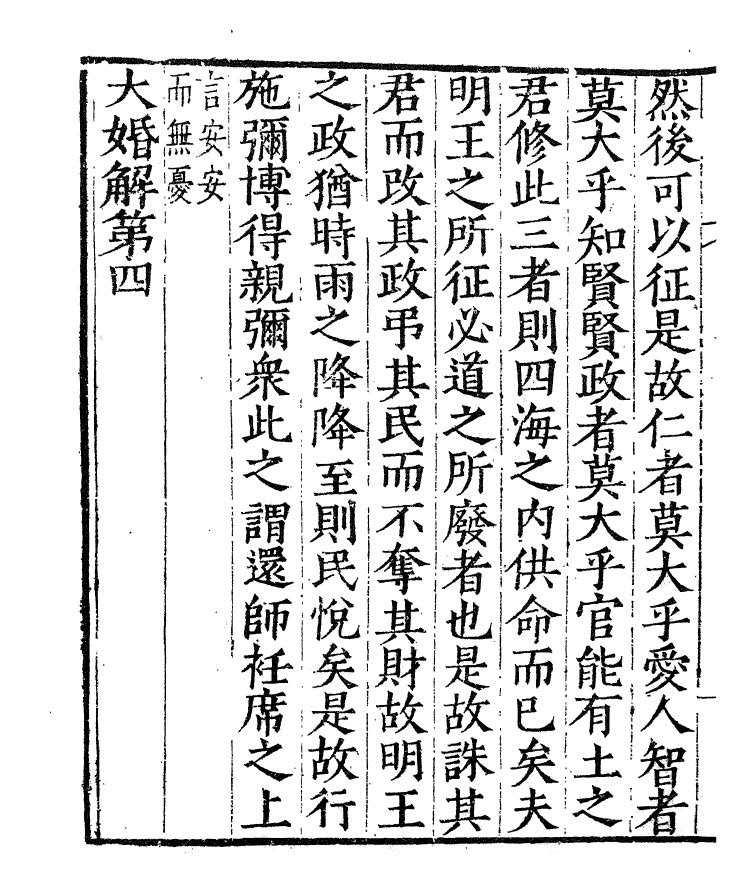 然後可以征是故仁者莫大乎愛人智者
莫大乎知賢賢政者莫大乎官能有土之
君修此三者則四海之内供命而已矣夫
明王之所征必道之所廢者也是故誅其
君而改其政弔其民而不奪其財故明王
之政猶時雨之降降至則民悅矣是故行
施彌博得親彌衆此之謂還師衽席之上
言安安
而無憂
大婚解第四